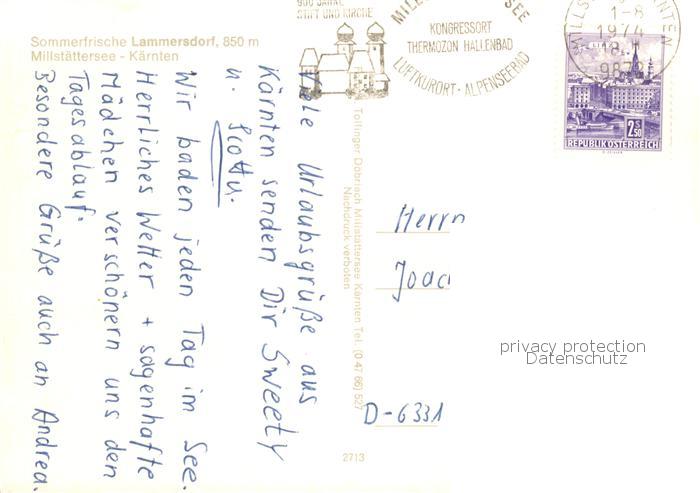 Sommerfrische Lammersdorf, 850 m
Millstättersee - Kärnten
900 JAHRE
STIFT UND KIRCHE
KONGRESSORT
THERMOZON HALLENBAD
LUFTKURORT - ALPENSEEBAD
1-8
1974
18
987
LINZ
2S50
REPUBLIK ÖSTERREICH
Viele Urlaubsgrüße aus
Kärnten senden Dir Sweety
u. Scotty.
Wir baden jeden Tag im See.
Herrliches Wetter + sagenhafte
Mädchen verschönern uns den
Tagesablauf.
Besondere Grüße auch an Andrea.
Tollinger Döbriach Millstättersee Kärnten Tel. (0 47 66) 527
Nachdruck verboten
Herrn
Joac
D-6331
2713
privacy protection
Datenschutz